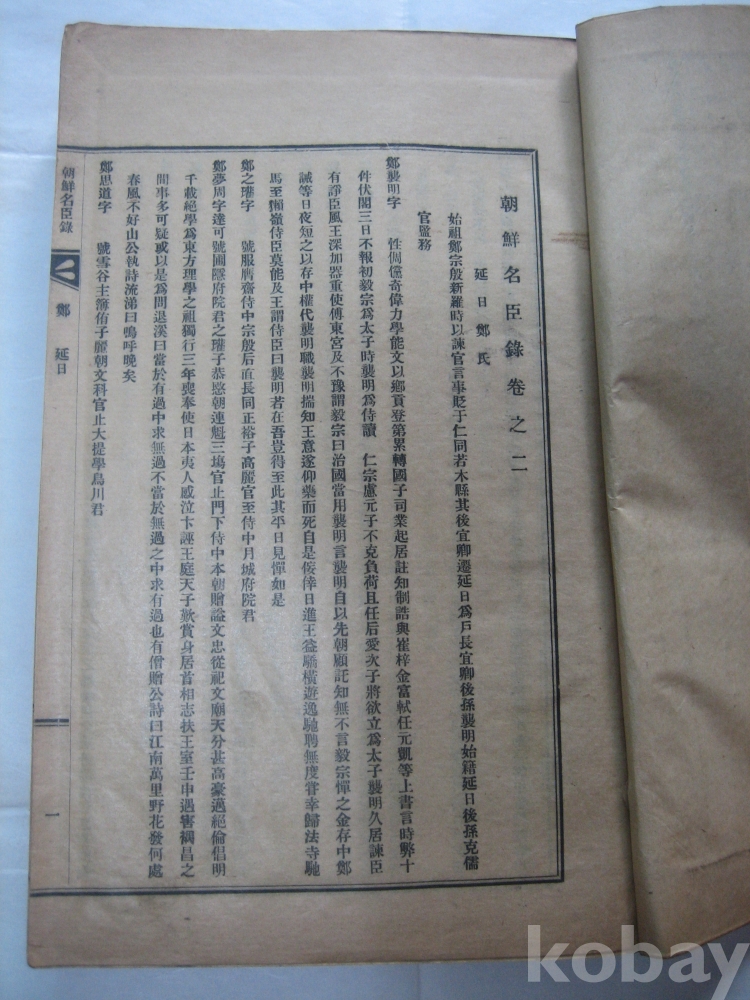 朝鮮名臣錄卷之二
延日鄭氏
始祖鄭宗殷新羅時以諫官言事貶于仁同若木縣其後宜卿遷延日爲戶長宜卿後孫襲明始籍延日後孫克儒
官監務
鄭襲明字 性倜儻奇偉力學能文以鄕貢登第累轉國子司業起居註知制誥與崔梓金富軾任元凱等上書言時弊十
件伏閤三日不報初毅宗爲太子時襲明爲侍讀 仁宗慮元子不克負荷且任后愛次子將欲立爲太子襲明久居諫臣
有諍臣風王深加器重使傅東宮及不豫謂毅宗曰治國當用襲明言襲明自以先朝顧託知無不言毅宗憚之金存中鄭
諴等日夜短之以存中權代襲明職襲明揣知王意遂仰藥而死自是倿倖日進王益驕橫遊逸馳騁無度嘗幸歸法寺馳
馬至獺嶺侍臣莫能及王謂侍臣曰襲明若在吾豈得至此其平日見憚如是
鄭之瓘字 號服膺齋侍中宗殷后直長同正裕子高麗官至侍中月城府院君
鄭夢周字達可號圃隱府院君之瓘子恭愍朝連魁三塲官止門下侍中本朝贈謚文忠從祀文廟天分甚高豪邁絕倫倡明
千載絕學爲東方理學之祖獨行三年喪奉使日本夷人感泣卞誣王庭天子歎賞身居首相志扶王室壬申遇害禑昌之
間事多可疑或以是爲問退溪曰當於有過中求無過不當於無過之中求有過也有僧贈公詩曰江南萬里野花發何處
春風不好山公執詩流涕曰嗚呼晚矣
鄭思道字 號雪谷主簿侑子麗朝文科官止大提學烏川君
朝鮮名臣錄
鄭 延日
一
kobay